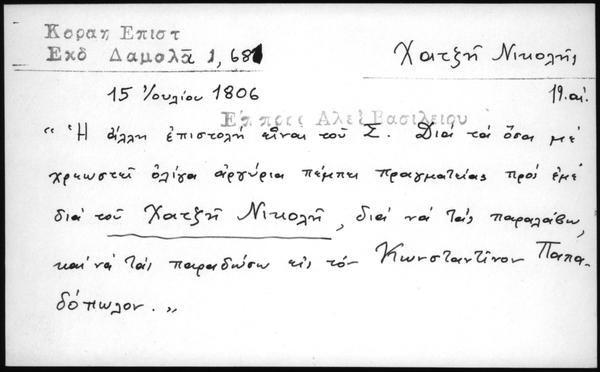 Κοραη Επιστ
Εκδ Δαμαλᾶ 1, 681
Χατζῆ Νικολῆς
15 Ἰουλίου 1806
19. αἰ.
Επ προς Αλεξ Βασιλειου
“ Ἡ ἄλλη ἐπιστολή εἶναι τοῦ Σ. Διά τά ὅσα μέ
χρεωστεῖ ὀλίγα ἀργύρια πέμπει πραγματείας πρός ἐμέ
διά τοῦ Χατζῆ Νικολῆ, διά νά τάς παραλάβω,
καί νά τάς παραδώσω εἰς τόν Κωνσταντῖνον Παπα-
δόπωλον . „